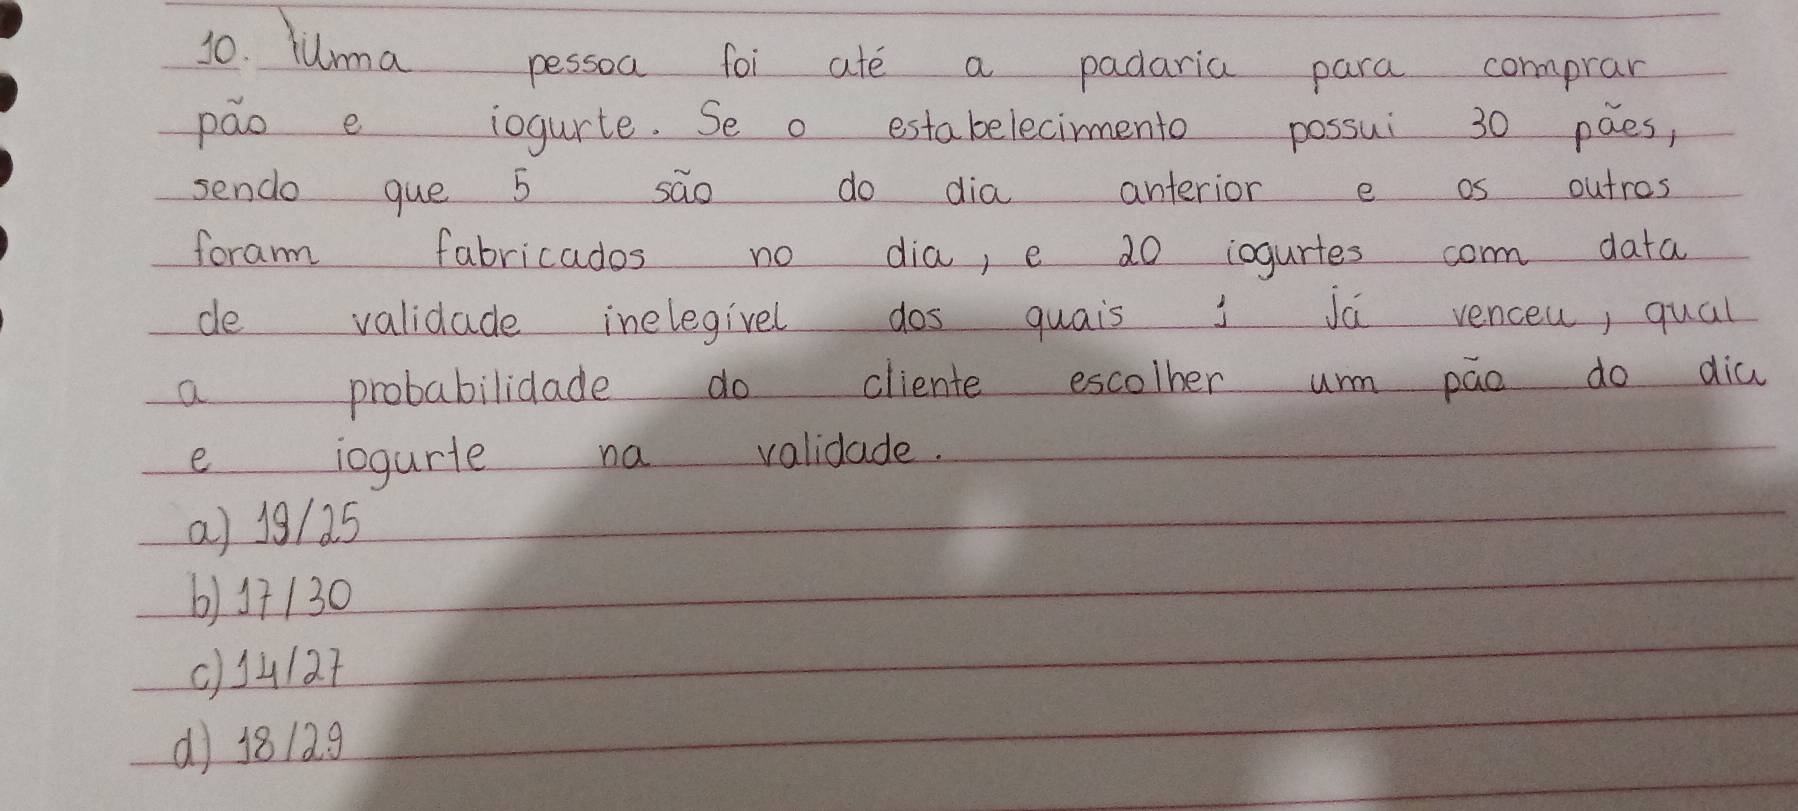 10. Uma pessoa foi até a padaria para comprar
pão e iogurte. Se o estabelecimento possui 30 pães,
sendo que 5 são do dia anterior e os outros
foram fabricados no dia, e 20 iogurtes com data
de validade inelegível dos quais 1 Já venceu, qual
a probabilidade do cliente escolher um pão do dia
e iogurte na validade.
a) 19/25
b) 17/30
c) 14/27
d) 18/29